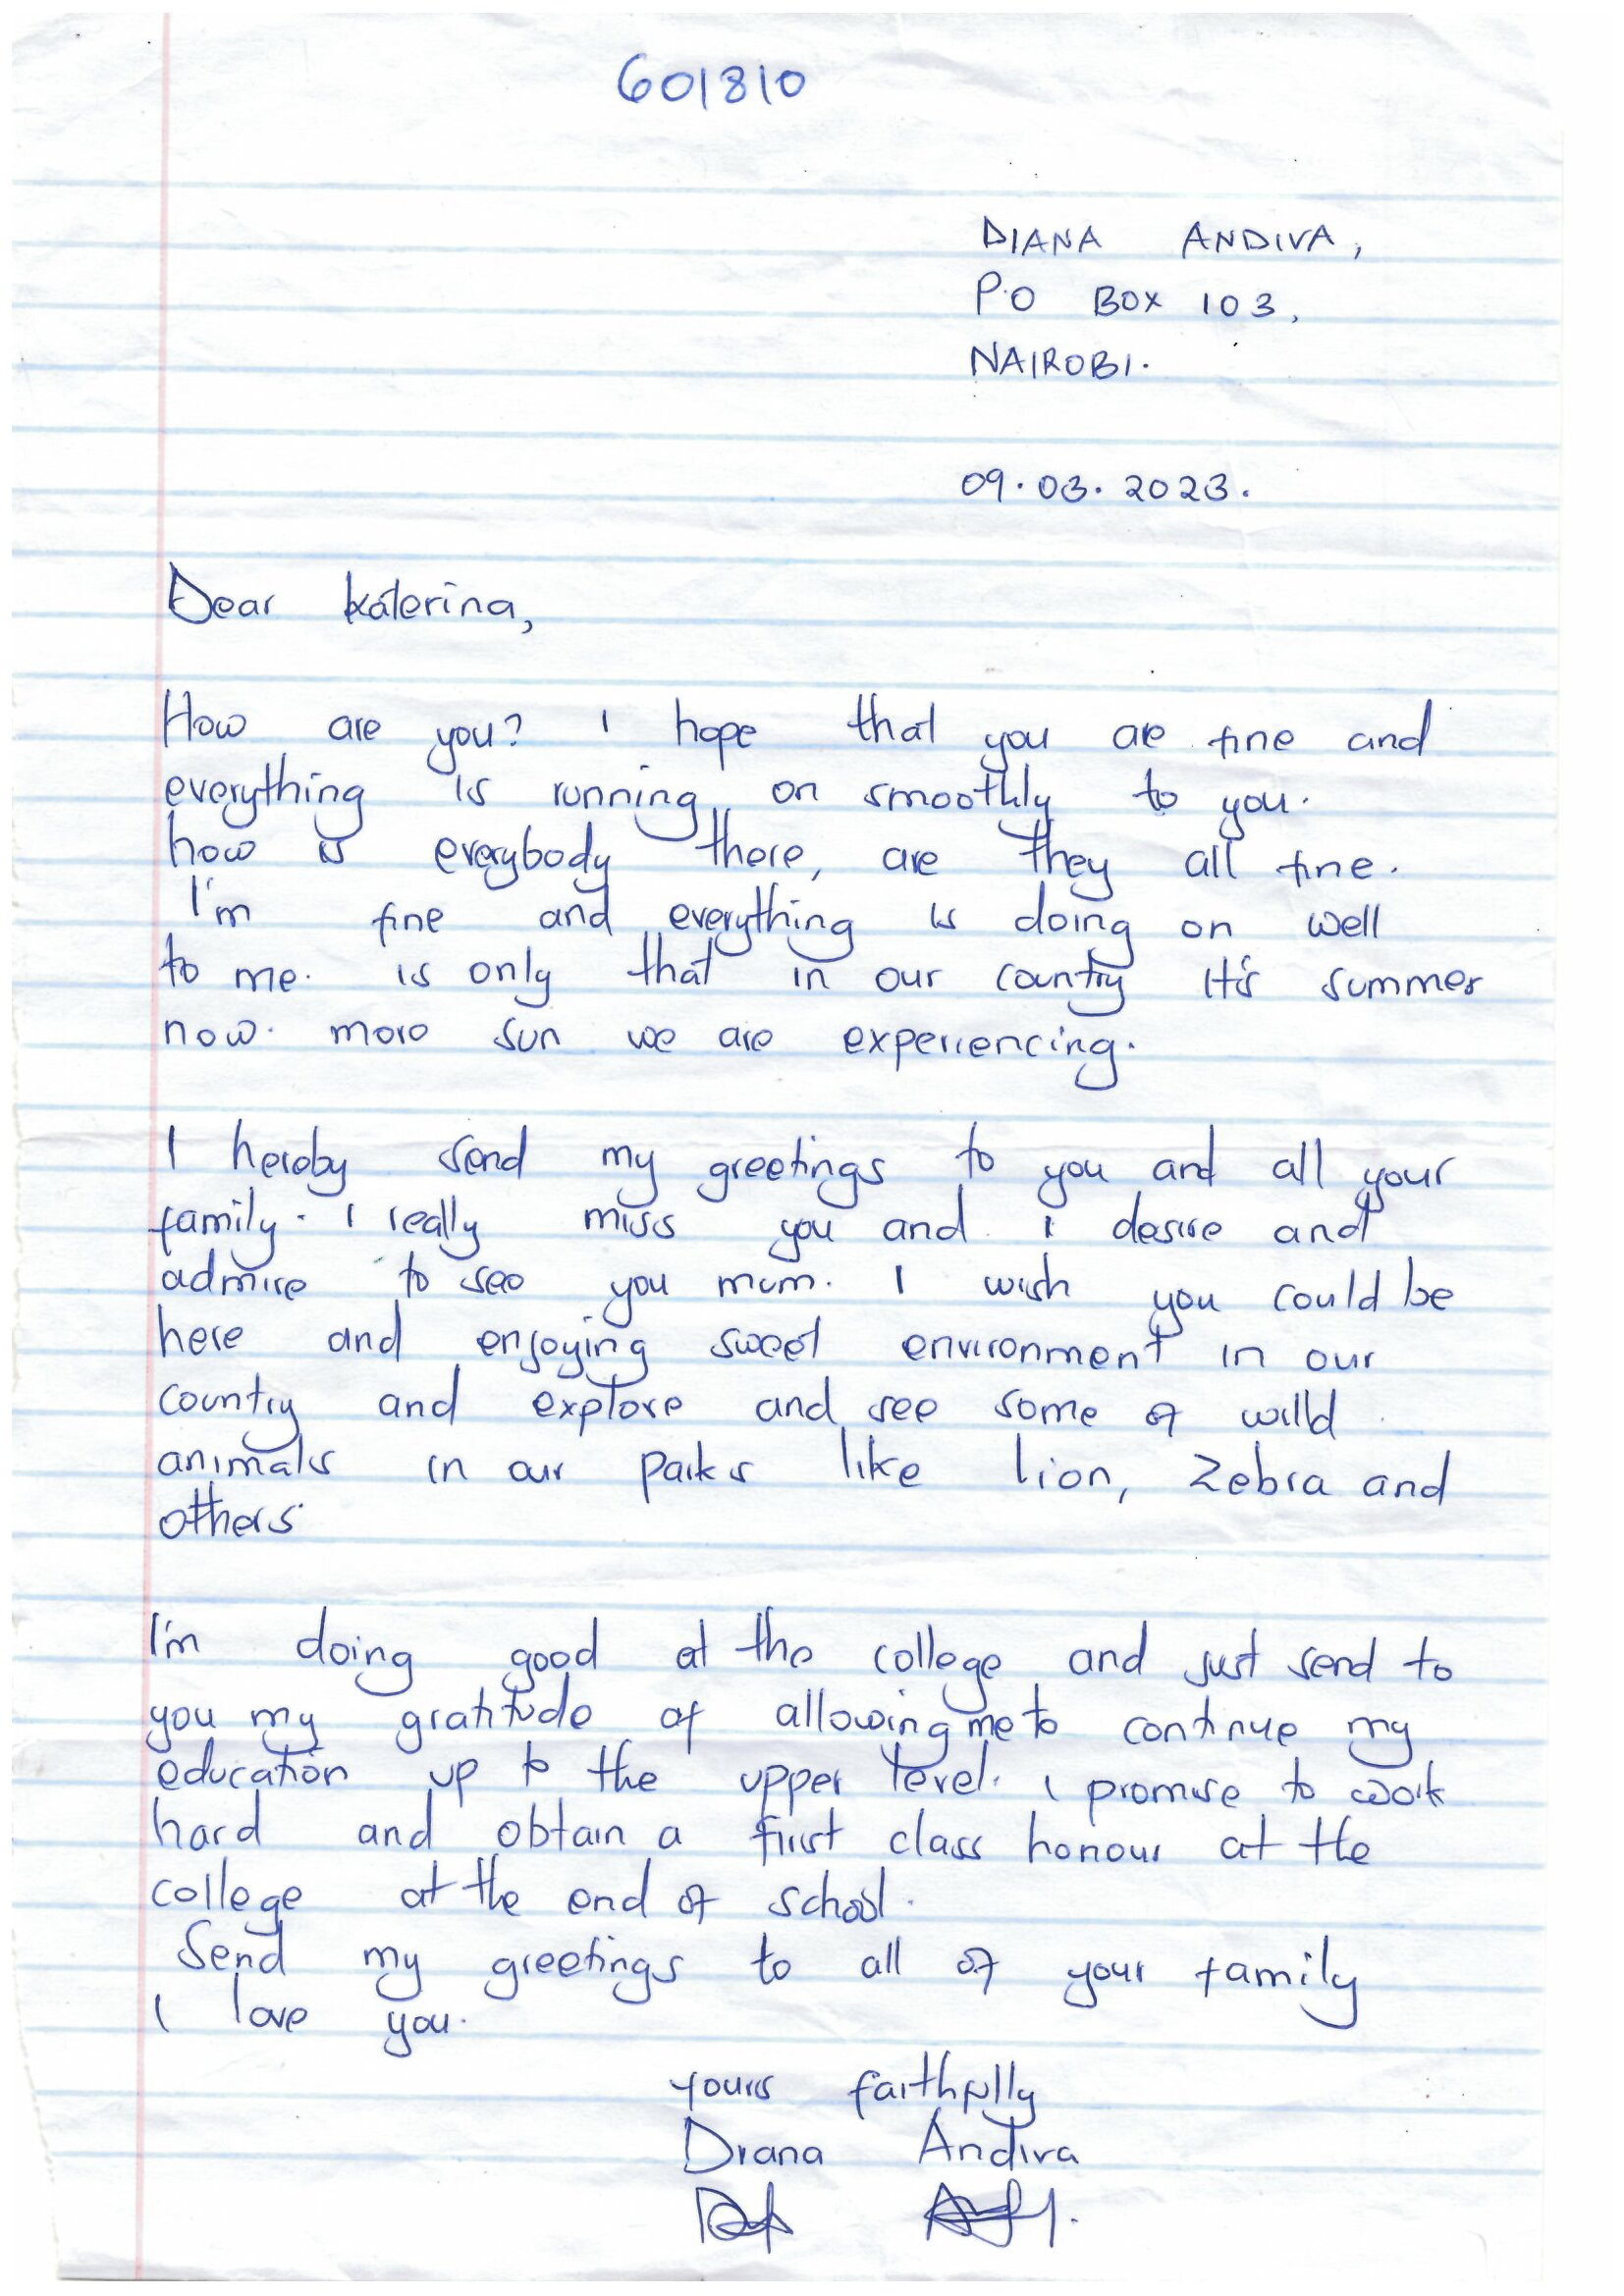 601810
DIANA ANDIVA,
P.O BOX 103,
NAIROBI.
09.03.2023.
Dear Katerina,
How are you? I hope that you are fine and
everything is running on smoothly to you.
how is everybody there, are they all fine.
I'm fine and everything is doing on well
to me. is only that in our country it's summer
now. more sun we are experiencing.
I hereby send my greetings to you and all your
family. I really miss you and I desire and
admire to see you mum. I wish you could be
here and enjoying sweet environment in our
country and explore and see some of willd
animals in our parks like lion, Zebra and
others.
I'm doing good at the college and just send to
you my gratitude of allowing me to continue my
education up to the upper level. I promise to work
hard and obtain a first class honour at the
college at the end of school.
Send my greetings to all of your family
I love you.
yours faithfully
Diana Andiva